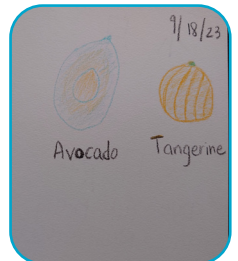 9/18/23
Avocado Tangerine